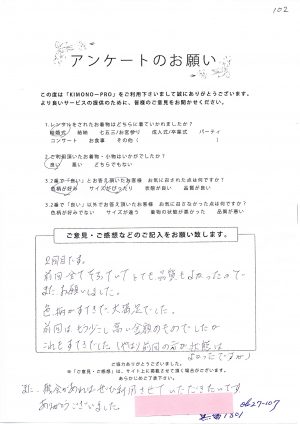 102
アンケートのお願い
この度は「KIMONO-PRO」をご利用下さいまして誠にありがとうございます。
より良いサービスの提供のために、皆様のご意見をお聞かせください。
1.レンタルをされたお着物はどちらに着ていかれましたか?
結婚式 結納 七五三/お宮参り 成人式/卒業式 パーティ
コンサート お食事 その他( )
2.ご利用頂いたお着物・小物はいかがでしたか?
良い 悪い どちらでもない
3.2番で「良い」とお答え頂いたお客様 お気に召された点は何ですか?
色柄が好み サイズがぴったり 状態が良い 品質が良い
3.2番で「良い」以外でお答え頂いたお客様 お気に召さなかった点は何ですか?
色柄が好みでない サイズが違う 着物の状態が悪かった 品質が悪い
ご意見・ご感想などのご記入をお願い致します。
2回目です。
前回全てそろっていてとても品質もよかったので
またお願いしました。
色柄がすてきで大満足でした。
前回はもう少し高い金額のものでしたが
これもすてきでした(やはり前回の方が状態は
よかったですが)
ご協力ありがとうございました。
※「ご意見・ご感想」は、サイト上に掲載させて頂く場合がございます。
あらかじめご了承下さい。
また、機会があればぜひ利用させていただきたいです
ありがとうございました。
0627-107
1301